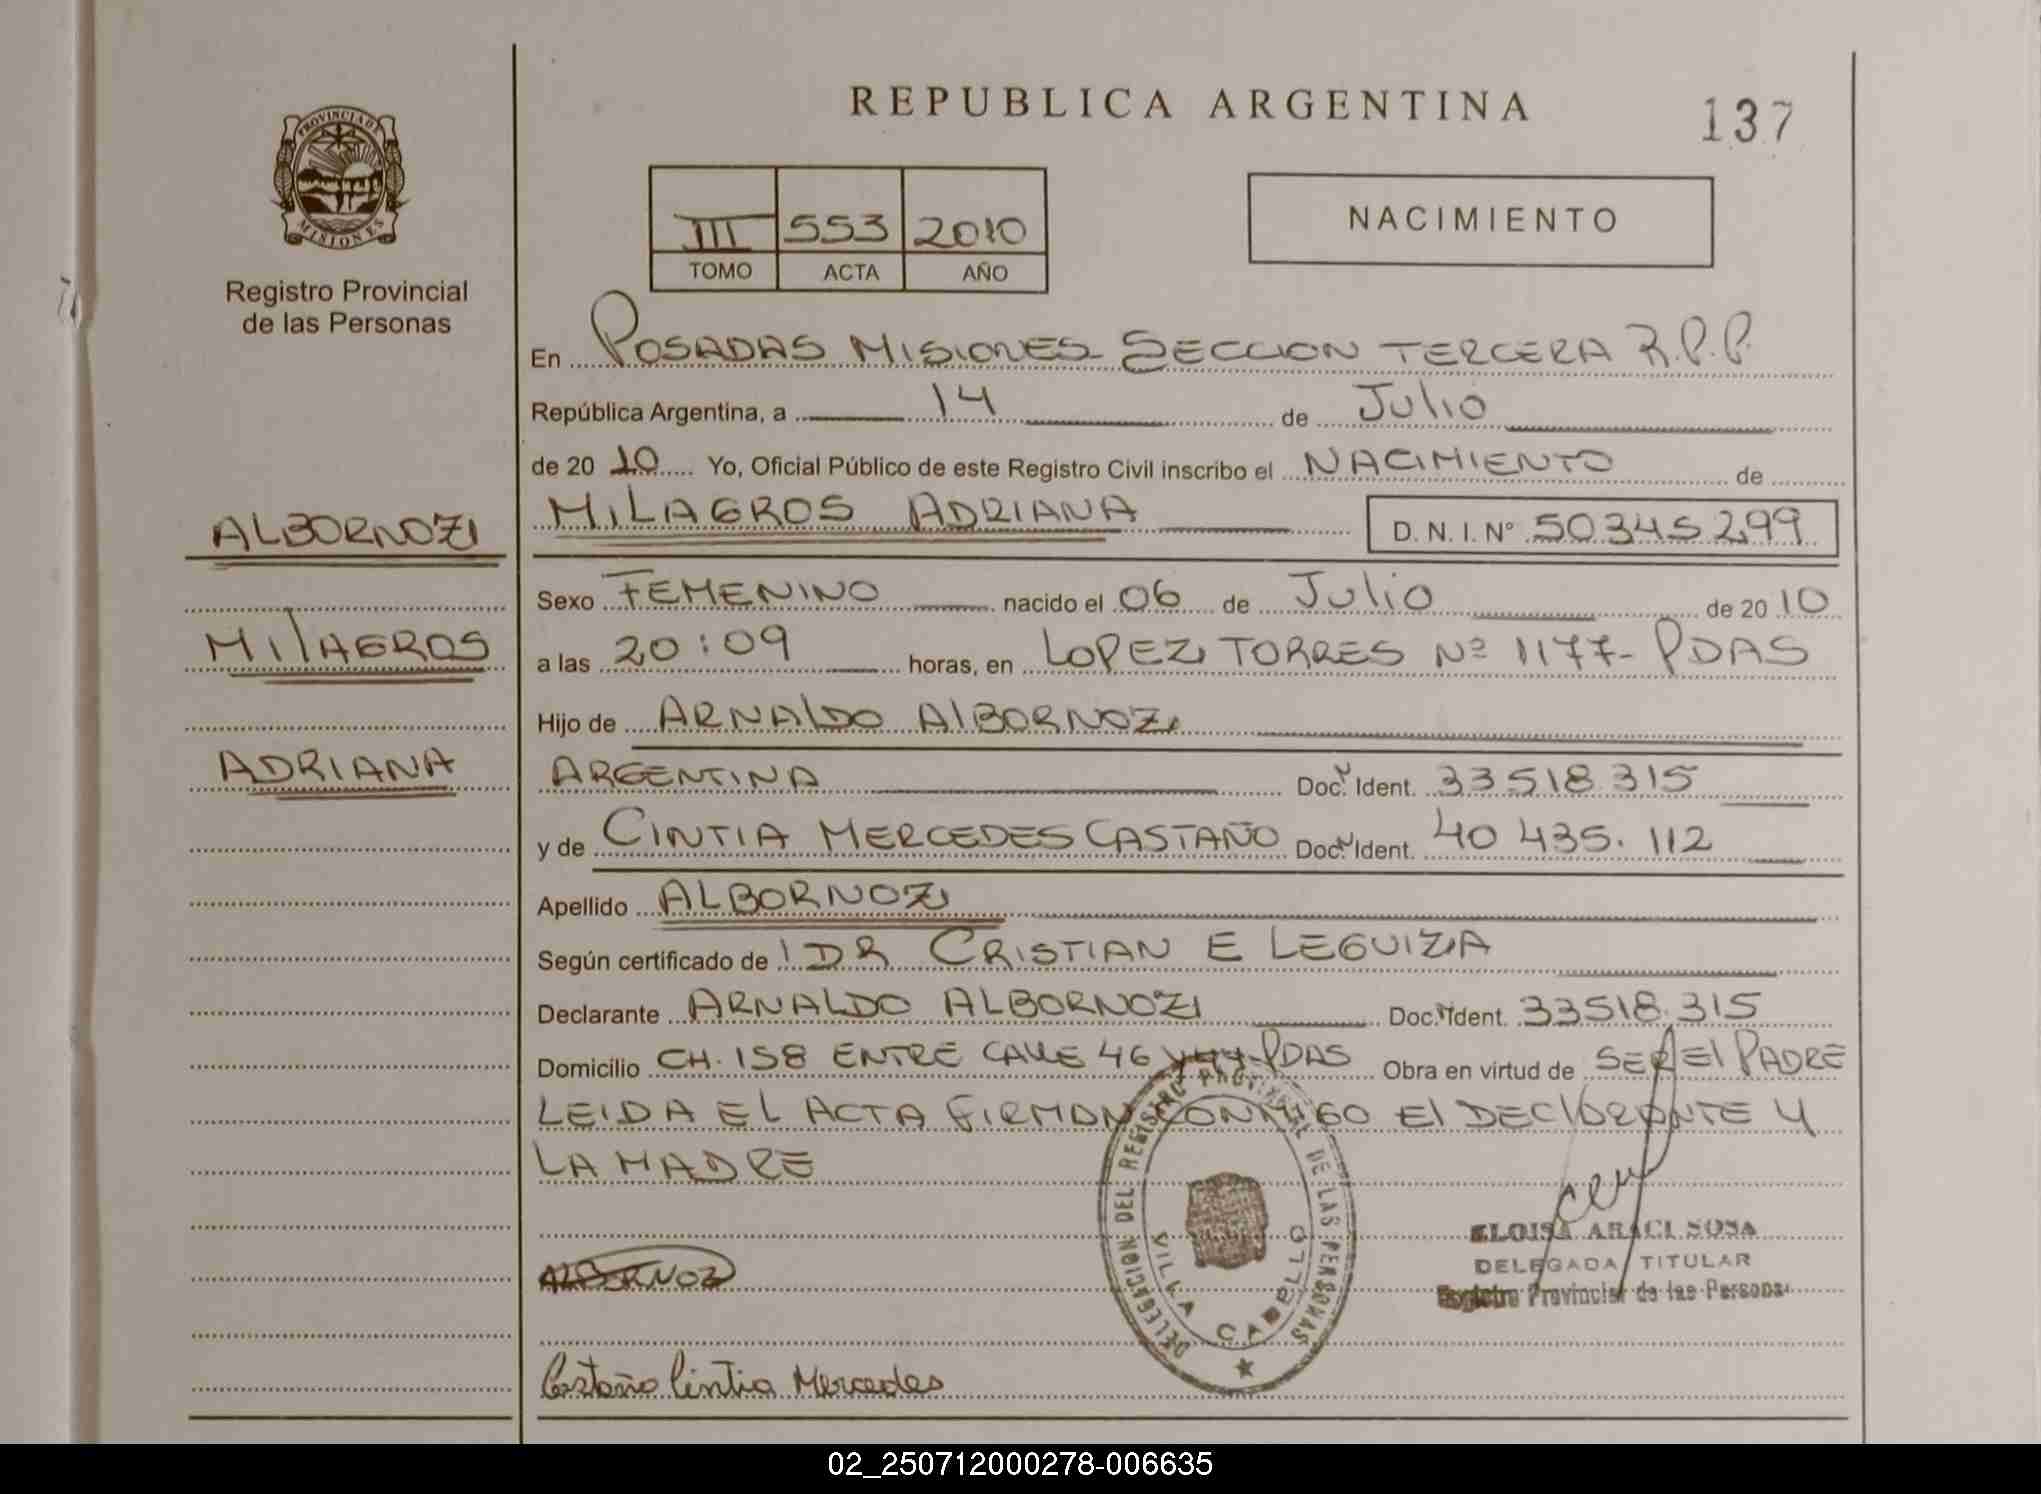 REPUBLICA ARGENTINA
137
PROVINCIA DE
MISIONES
Registro Provincial
de las Personas
III 553 2010
TOMO ACTA AÑO
NACIMIENTO
En POSADAS MISIONES SECCION TERCERA R.P.P.
República Argentina, a 14 de Julio
de 2010 Yo, Oficial Público de este Registro Civil inscribo el NACIMIENTO de
MILAGROS ADRIANA D.N.I. Nº 50345299
ALBORNOZ
Sexo FEMENINO nacido el 06 de Julio de 2010
MILAGROS
a las 20:09 horas, en LOPEZ TORRES Nº 1177- PDAS
Hijo de ARNALDO ALBORNOZ
ADRIANA
ARGENTINA Doc. Ident. 33518.315
y de CINTIA MERCEDES CASTAÑO Doc. Ident. 40 435.112
Apellido ALBORNOZ
Según certificado de DR CRISTIAN E LEGUIZA
Declarante ARNALDO ALBORNOZ Doc. Ident. 33518.315
Domicilio CH. 158 ENTRE CALLE 46 Y 44-PDAS Obra en virtud de SER El PADRE
LEIDA EL ACTA FIRMAN CONMIGO El DEClARANTE Y
LA MADRE
DELEGACION DEL REGISTRO PROVINCIAL DE LAS PERSONAS
VILLA CABELLO
ELOISA ARACI SOSA
DELEGADA TITULAR
Registro Provincial de las Personas
ALBORNOZ
Castaño Cintia Mercedes
02_250712000278-006635